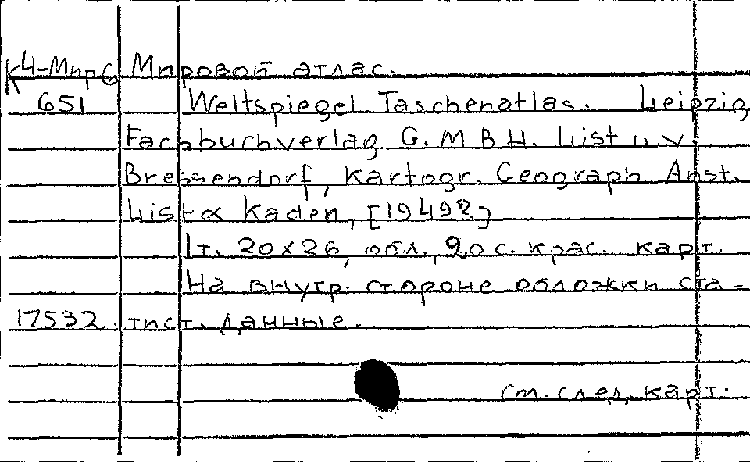 К4-Мир6 Мировой атлас.
651 Weltspiegel. Taschenatlas. Leipzig
Fachbuchverlag G.M.B.H. List u. v.
Bressendorf, Kartogr. Geograph. Anst.
List & Kaden, [1949?]
1т. 20x26, обл., 90 с. крас. карт.
На внутр. стороне обложки ста-
17532. тист. данные.
См. след. карт.